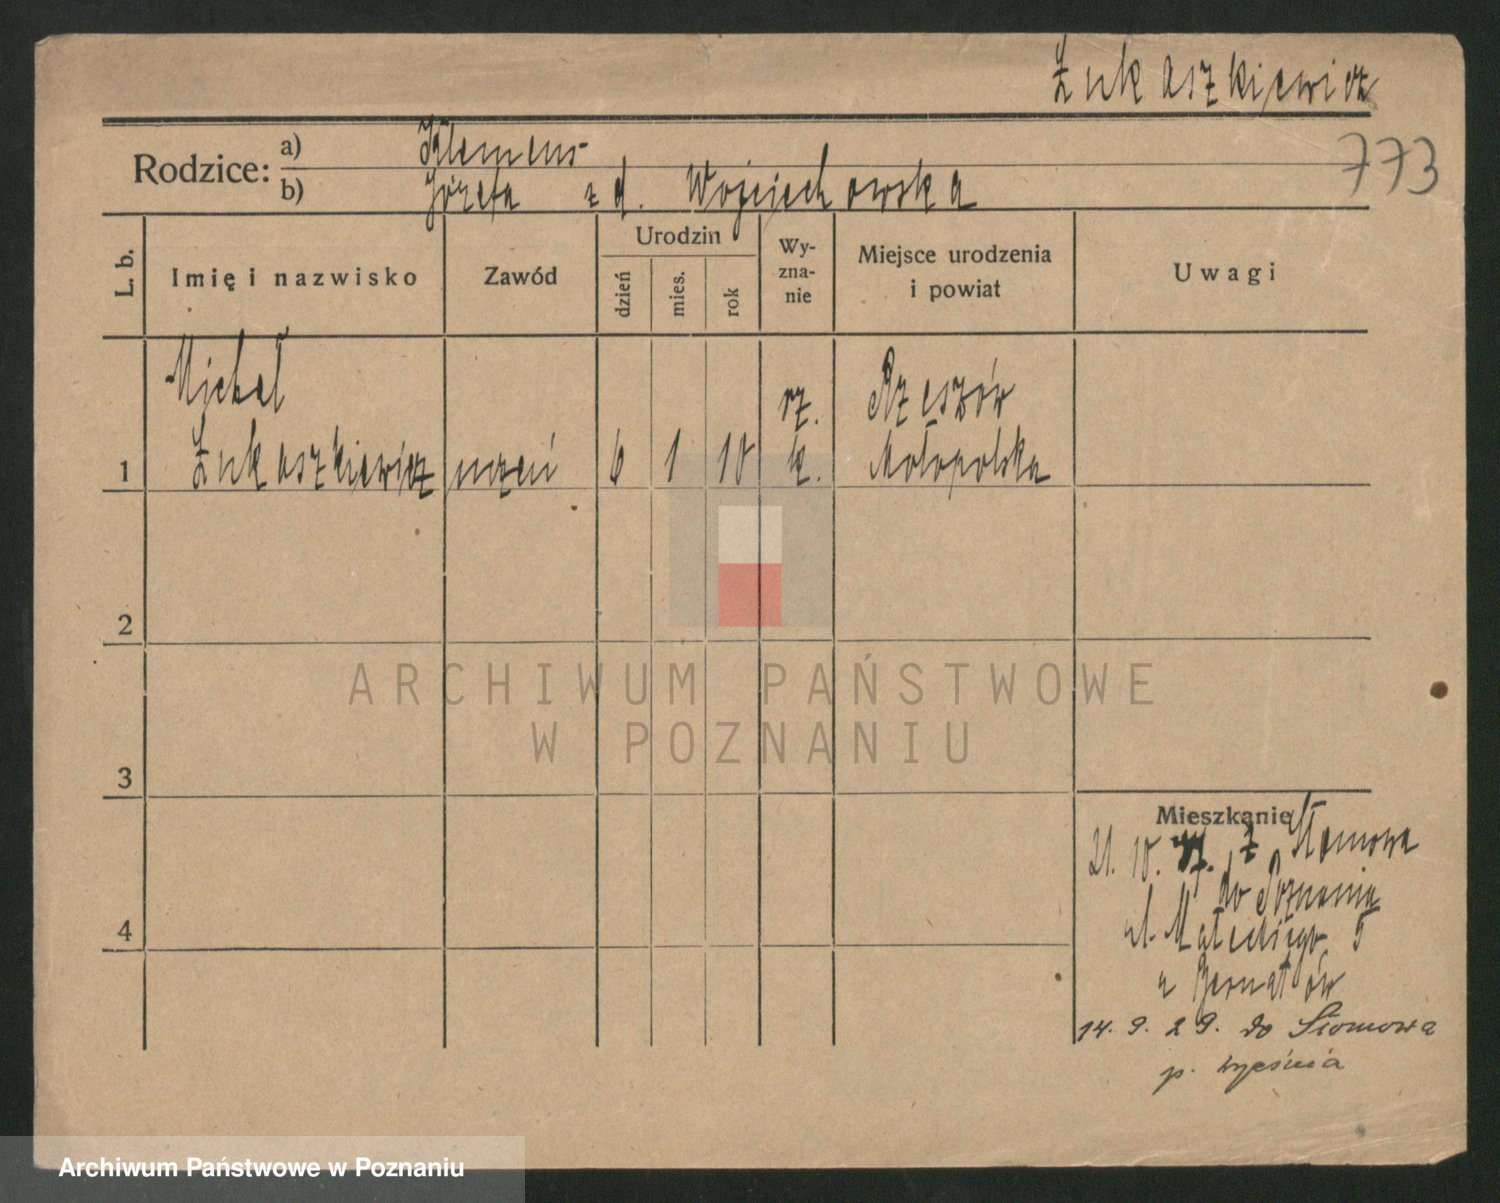 Łukaszkiewicz
773
Rodzice: a) Klemens
b) Józefa z d. Wojciechowska
L. b. Imię i nazwisko Zawód Urodzin dzień mies. rok Wy-zna-nie Miejsce urodzenia i powiat Uwagi
Michał rz. Rzeszów
1 Łukaszkiewicz uczeń 6 1 10 k. Małopolska
2
ARCHIWUM PAŃSTWOWE
W POZNANIU
3
Mieszkanie
21. 10. z
do Poznania
4 ul. Małeckiego 5
u
14. 9. 29. do
p.
Archiwum Państwowe w Poznaniu